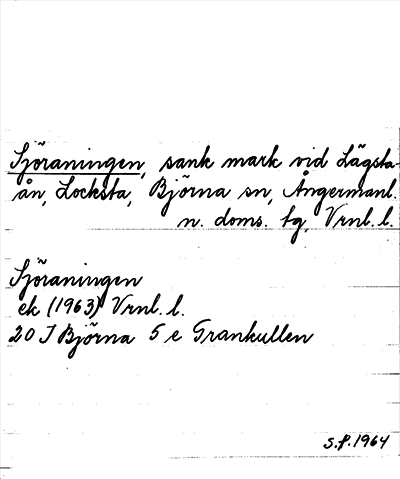 Sjöraningen, sank mark vid Lägsta-
ån, Locksta, Björna sn, Ångermanl.
n. doms. tg, Vrnl. l.
Sjöraningen
ek (1963) Vrnl. l.
20 J Björna 5 e Grankullen
S.f. 1964